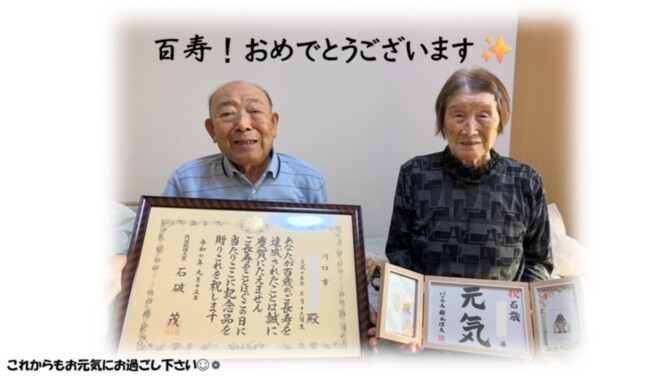 百寿！おめでとうございます✨
川口市
殿
あなたが百歳のご長寿を
達成されたことは誠に
慶賀にたえません
ご長寿をことほぐこの日に
当たりここに記念品を
贈りこれを祝します
令和七年九月十五日
内閣総理大臣 石破 茂
祝百歳
元気
様
これからもお元気にお過ごし下さい☺